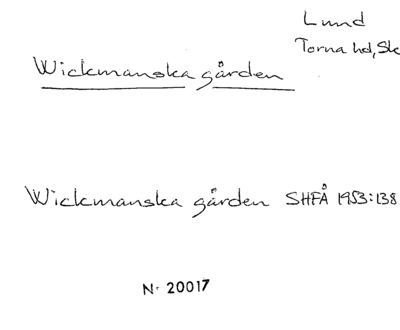 Lund
Torna hd, Sk
Wickmanska gården
Wickmanska gården SHFÅ 1953:138
Nr 20017